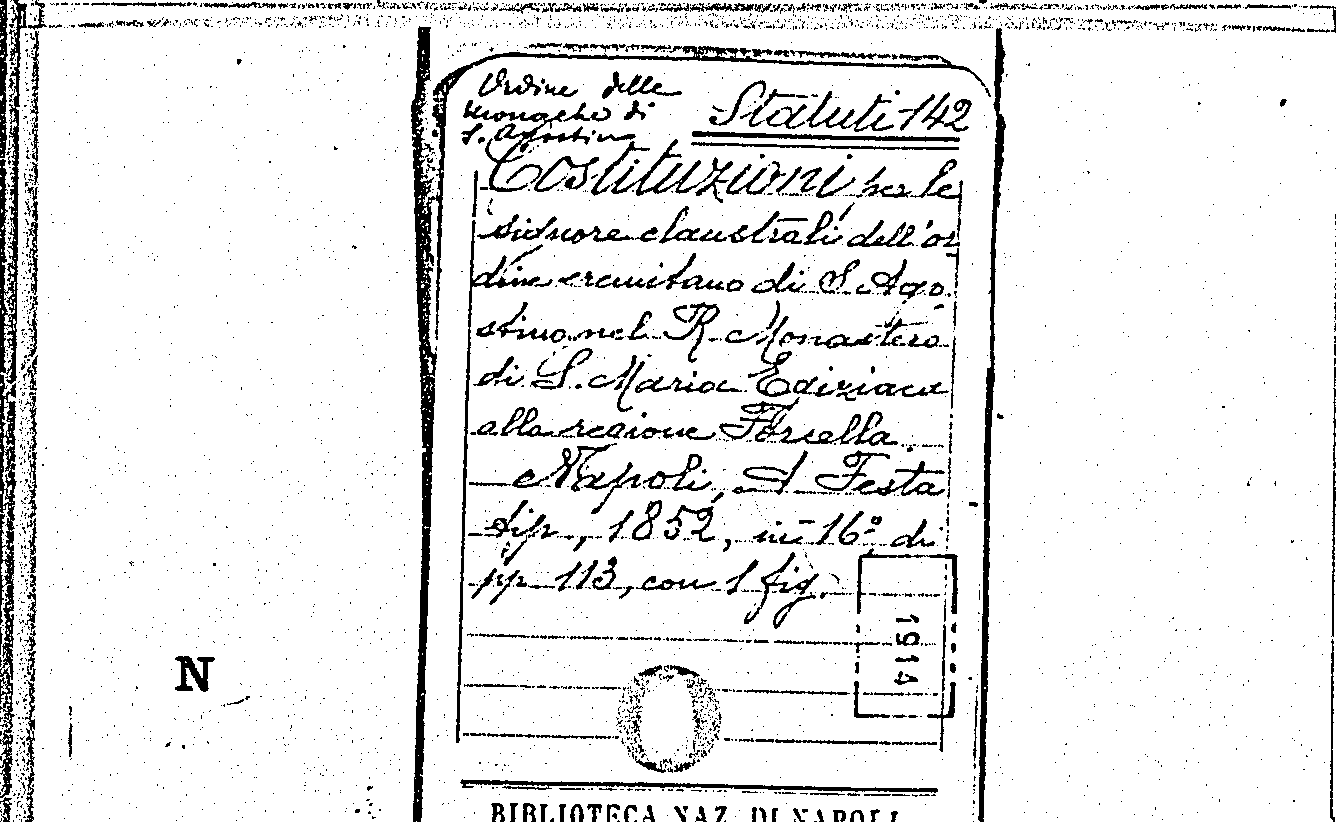 Ordine delle
Monache di
S. Agostino
Statuti 142
Costituzioni per le
signore claustrali dell'or
dine eremitano di S. Ago
stino nel R. Monastero
di S. Maria Egiziaca
alla regione Forcella.
Napoli, A. Festa
tip., 1852, in-16º, di
pp. 113, con 1 fig.
1914
N
BIBLIOTECA NAZ. DI NAPOLI